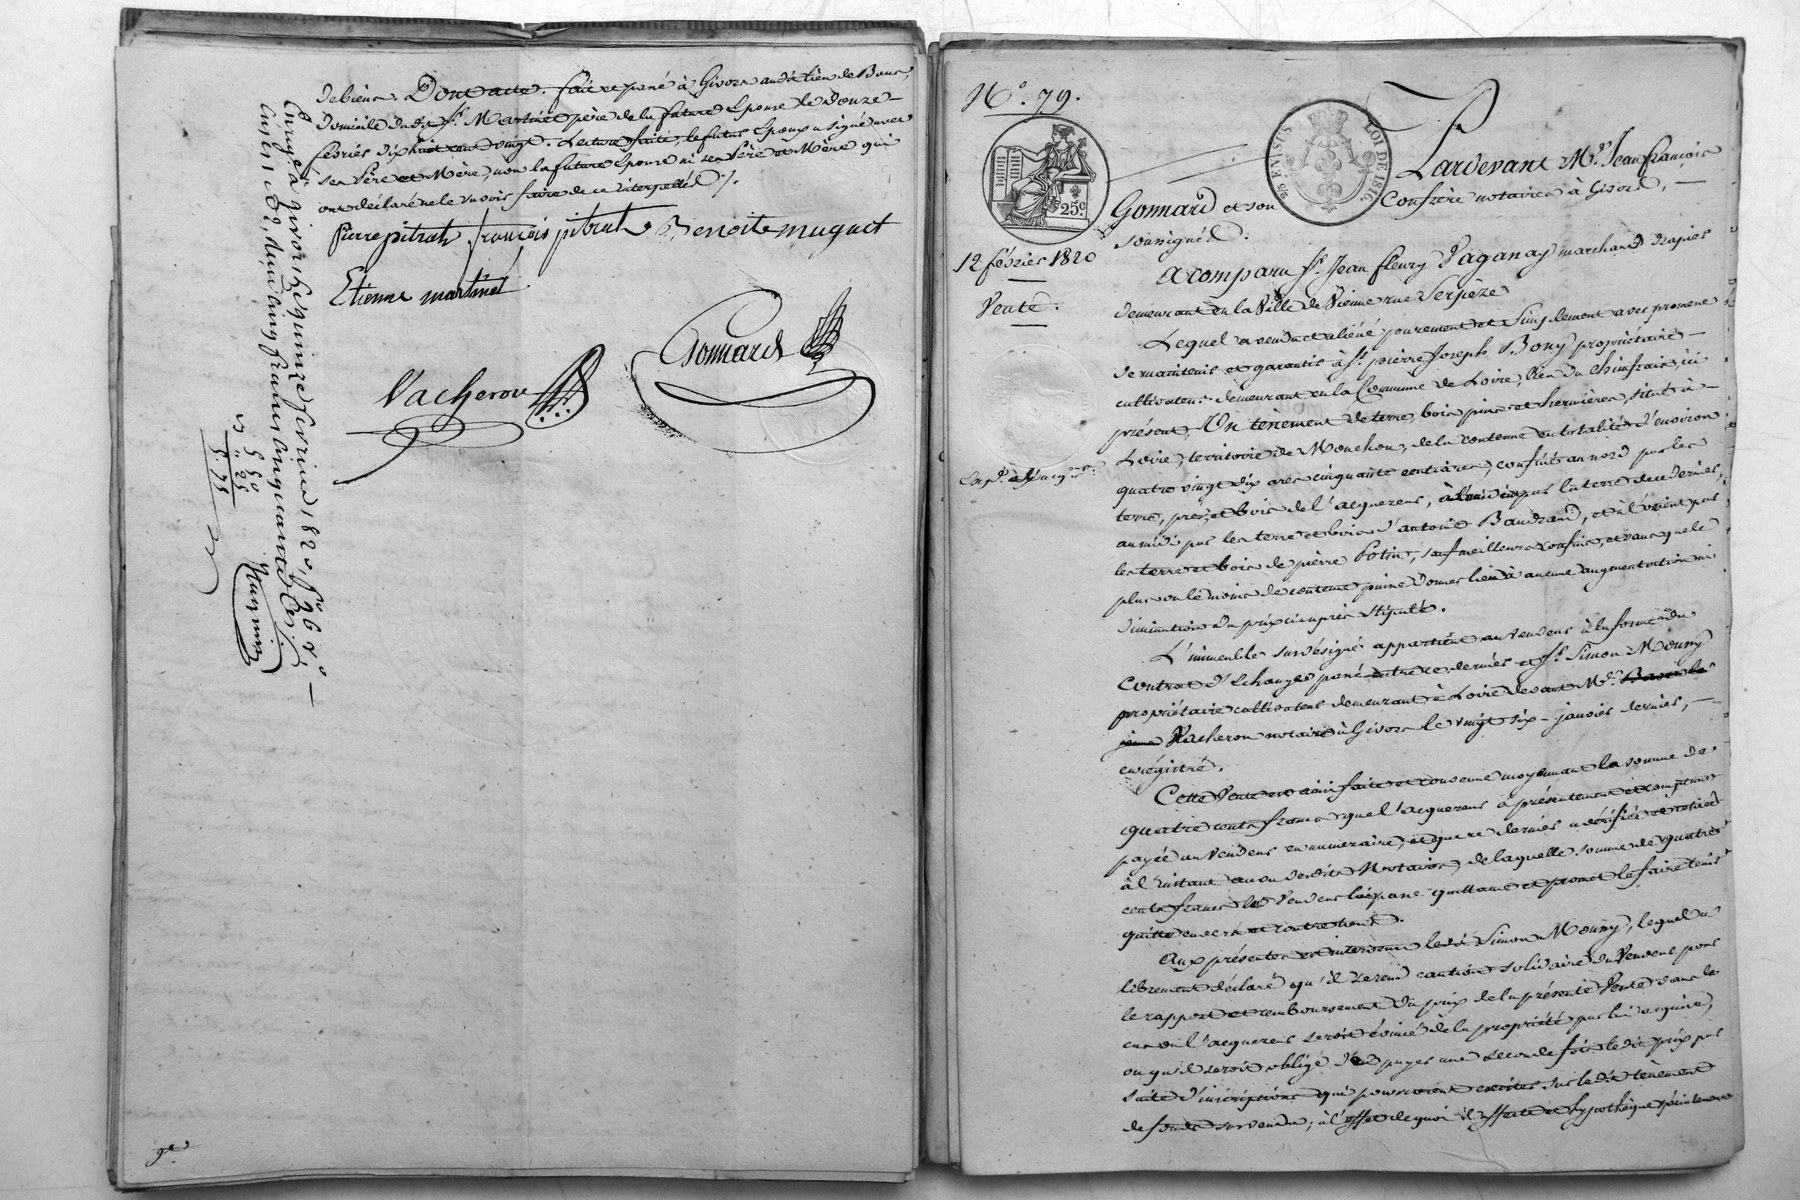 de biens. Dont acte. fait et passé à Givors audit lieu de Bans,
domicile dudit Sr. Martinet père de la future Epouse le douze
février dix huit cent vingt. Lecture faite, le futur Epoux a signé avec
ses Père et Mère, non la future Epouse ni ses Père et Mère qui
ont déclaré ne le savoir faire de ce interpellés ./.
pierre pitrat françois pitrat Benoite muguet
Etienne martinet
Vacheron Gonnard
Enregé à givors, le quinze février 1820, fo 26 Vo
Cases 1 et 2, reçu cinq francs cinquante
5 50
" 55
N°. 79.
25c
12 février 1820
Vente.
LOI DE 1816.
Pardevant Me. Jean françois
Gonnard et son Confrère notaires à Givors,
soussignés.
A comparu Sr. Jean fleury Paganay marchand drapier
demeurant en la Ville de Vienne rue Serpèze
Lequel a vendu et aliéné purement et simplement avec promesse
de maintenir et garantir à Sr. pierre Joseph Bony propriétaire
cultivateur demeurant en la Commune de Loire, lieu du Chinfrais, ici
présent, Un tènement de terre, bois pins et hermières, situé à
Loire, territoire de Mouchon, de la contenue en totalité d'environ
quatre vingt dix ares cinquante centiares, confiné au nord par les
terre, près et bois de l'acquereur, à l'orient par la terre de ce dernier,
au midi par les terre et bois d'antoine Baudrand, et à l'orient par
les terre et bois de pierre Potin, sauf meilleurs confins, et sans que le
plus ou le moins de contenue puisse donner lieu à aucune augmentation ni
diminution du prix ci après stipulé.
L'immeuble sus désigné appartient au vendeur à la forme du
Contrat d'Echange passé entre ce dernier et Sr. Simon Mouny
propriétaire cultivateur demeurant à Loire devant Me.
Vacheron notaire à Givors le vingt six janvier dernier,
enrégistré.
Cette Vente est ainsi faite et consentie moyennant la somme de
quatre cents francs que l'acquereur a présentement et comptant
payée au Vendeur en numéraire, et que ce dernier a vérifiée et retirée
à l'instant au vu desdits Notaires, de laquelle somme de quatre
cents francs le Vendeur lui passe quittance et promet le faire tenir
quitte envers et contre tous.
Aux présentes est intervenu ledit Simon Mouny, lequel a
librement déclaré qu'il se rend caution solidaire du Vendeur pour
le rapport et remboursement du prix de la présente Vente dans le
cas où l'acquereur seroit évincé de la propriété par lui acquise,
ou qu'il seroit obligé d'en payer une seconde fois ledit prix par
suite d'inscriptions qui pourroient exister sur ledit tènement
de fonds sus vendu; à l'effet de quoi il affecte et hypothèque spécialement